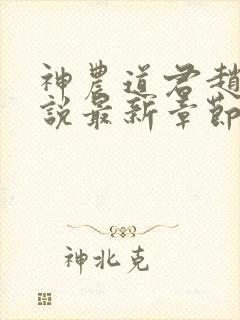 神農道君趙
說最新章節
神北克